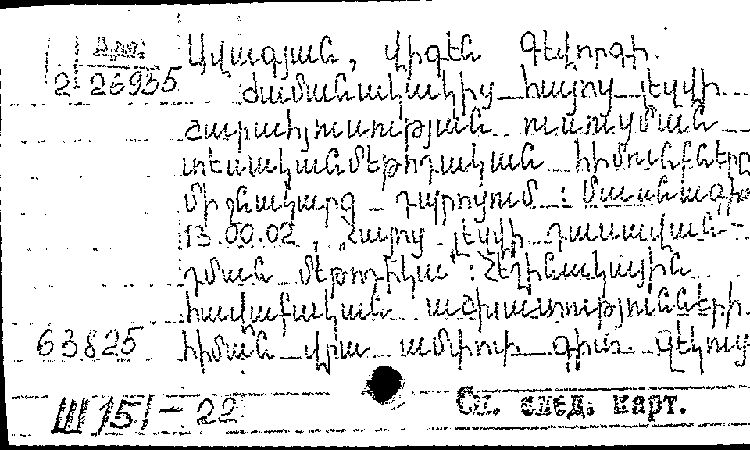 Արմ.
2 26935
Ավագյան, Վիգեն Գևորգի.
Ժամանակակից հայոց լեզվի
շարահյուսության ուսուցման
տեսականմեթոդական հիմունքները
միջնակարգ դպրոցում : Մասնագիտ
13.00.02, „Հայոց լեզվի դասավան-
դման մեթոդիկա" : Հեղինակային
հավաքական աշխատությունների
63825 հիման վրա ամփոփ գիտ. զեկույց
Ш151-22
См. след. карт.